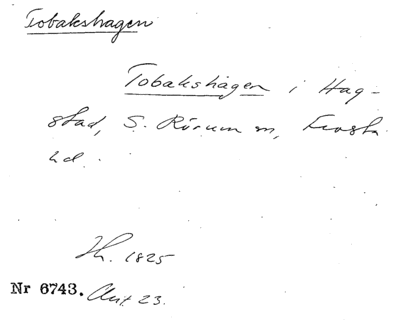 Tobakshagen
Tobakshagen i Hag-
stad, S. Rörum sn, Frosta
hd.
Th. 1825
Nr 6743. Avit. 23.